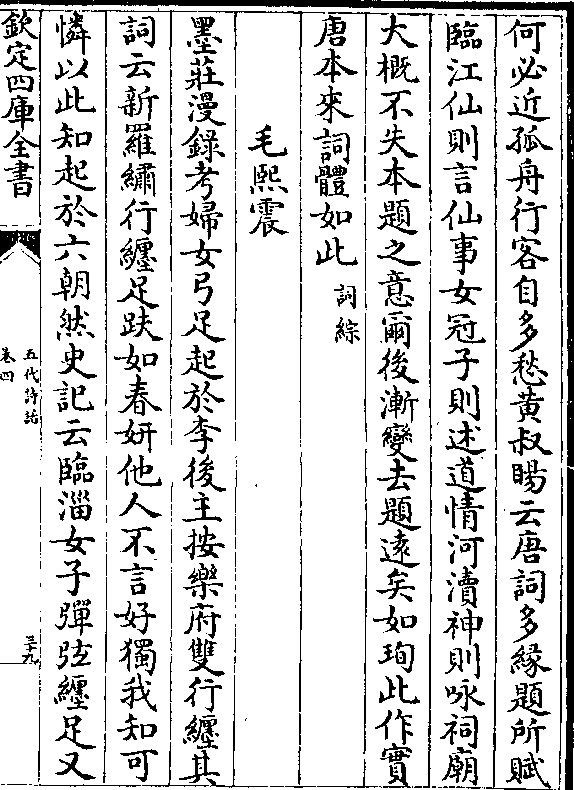 何必近孤舟行客自多愁黄叔暘云唐詞多縁題所賦
臨江仙則言仙事女冠子則述道情河瀆神則咏祠廟
大概不失本題之意爾後漸變去題遠矣如珣此作實
唐本來詞體如此詞綜
毛熙震
墨莊漫録考婦女弓足起於李後主按樂府雙行纏其
詞云新羅繡行纏足趺如春妍他人不言好獨我知可
憐以此知起於六朝然史記云臨淄女子彈弦纏足又
欽定四庫全書
五代詩話
卷四
三十九